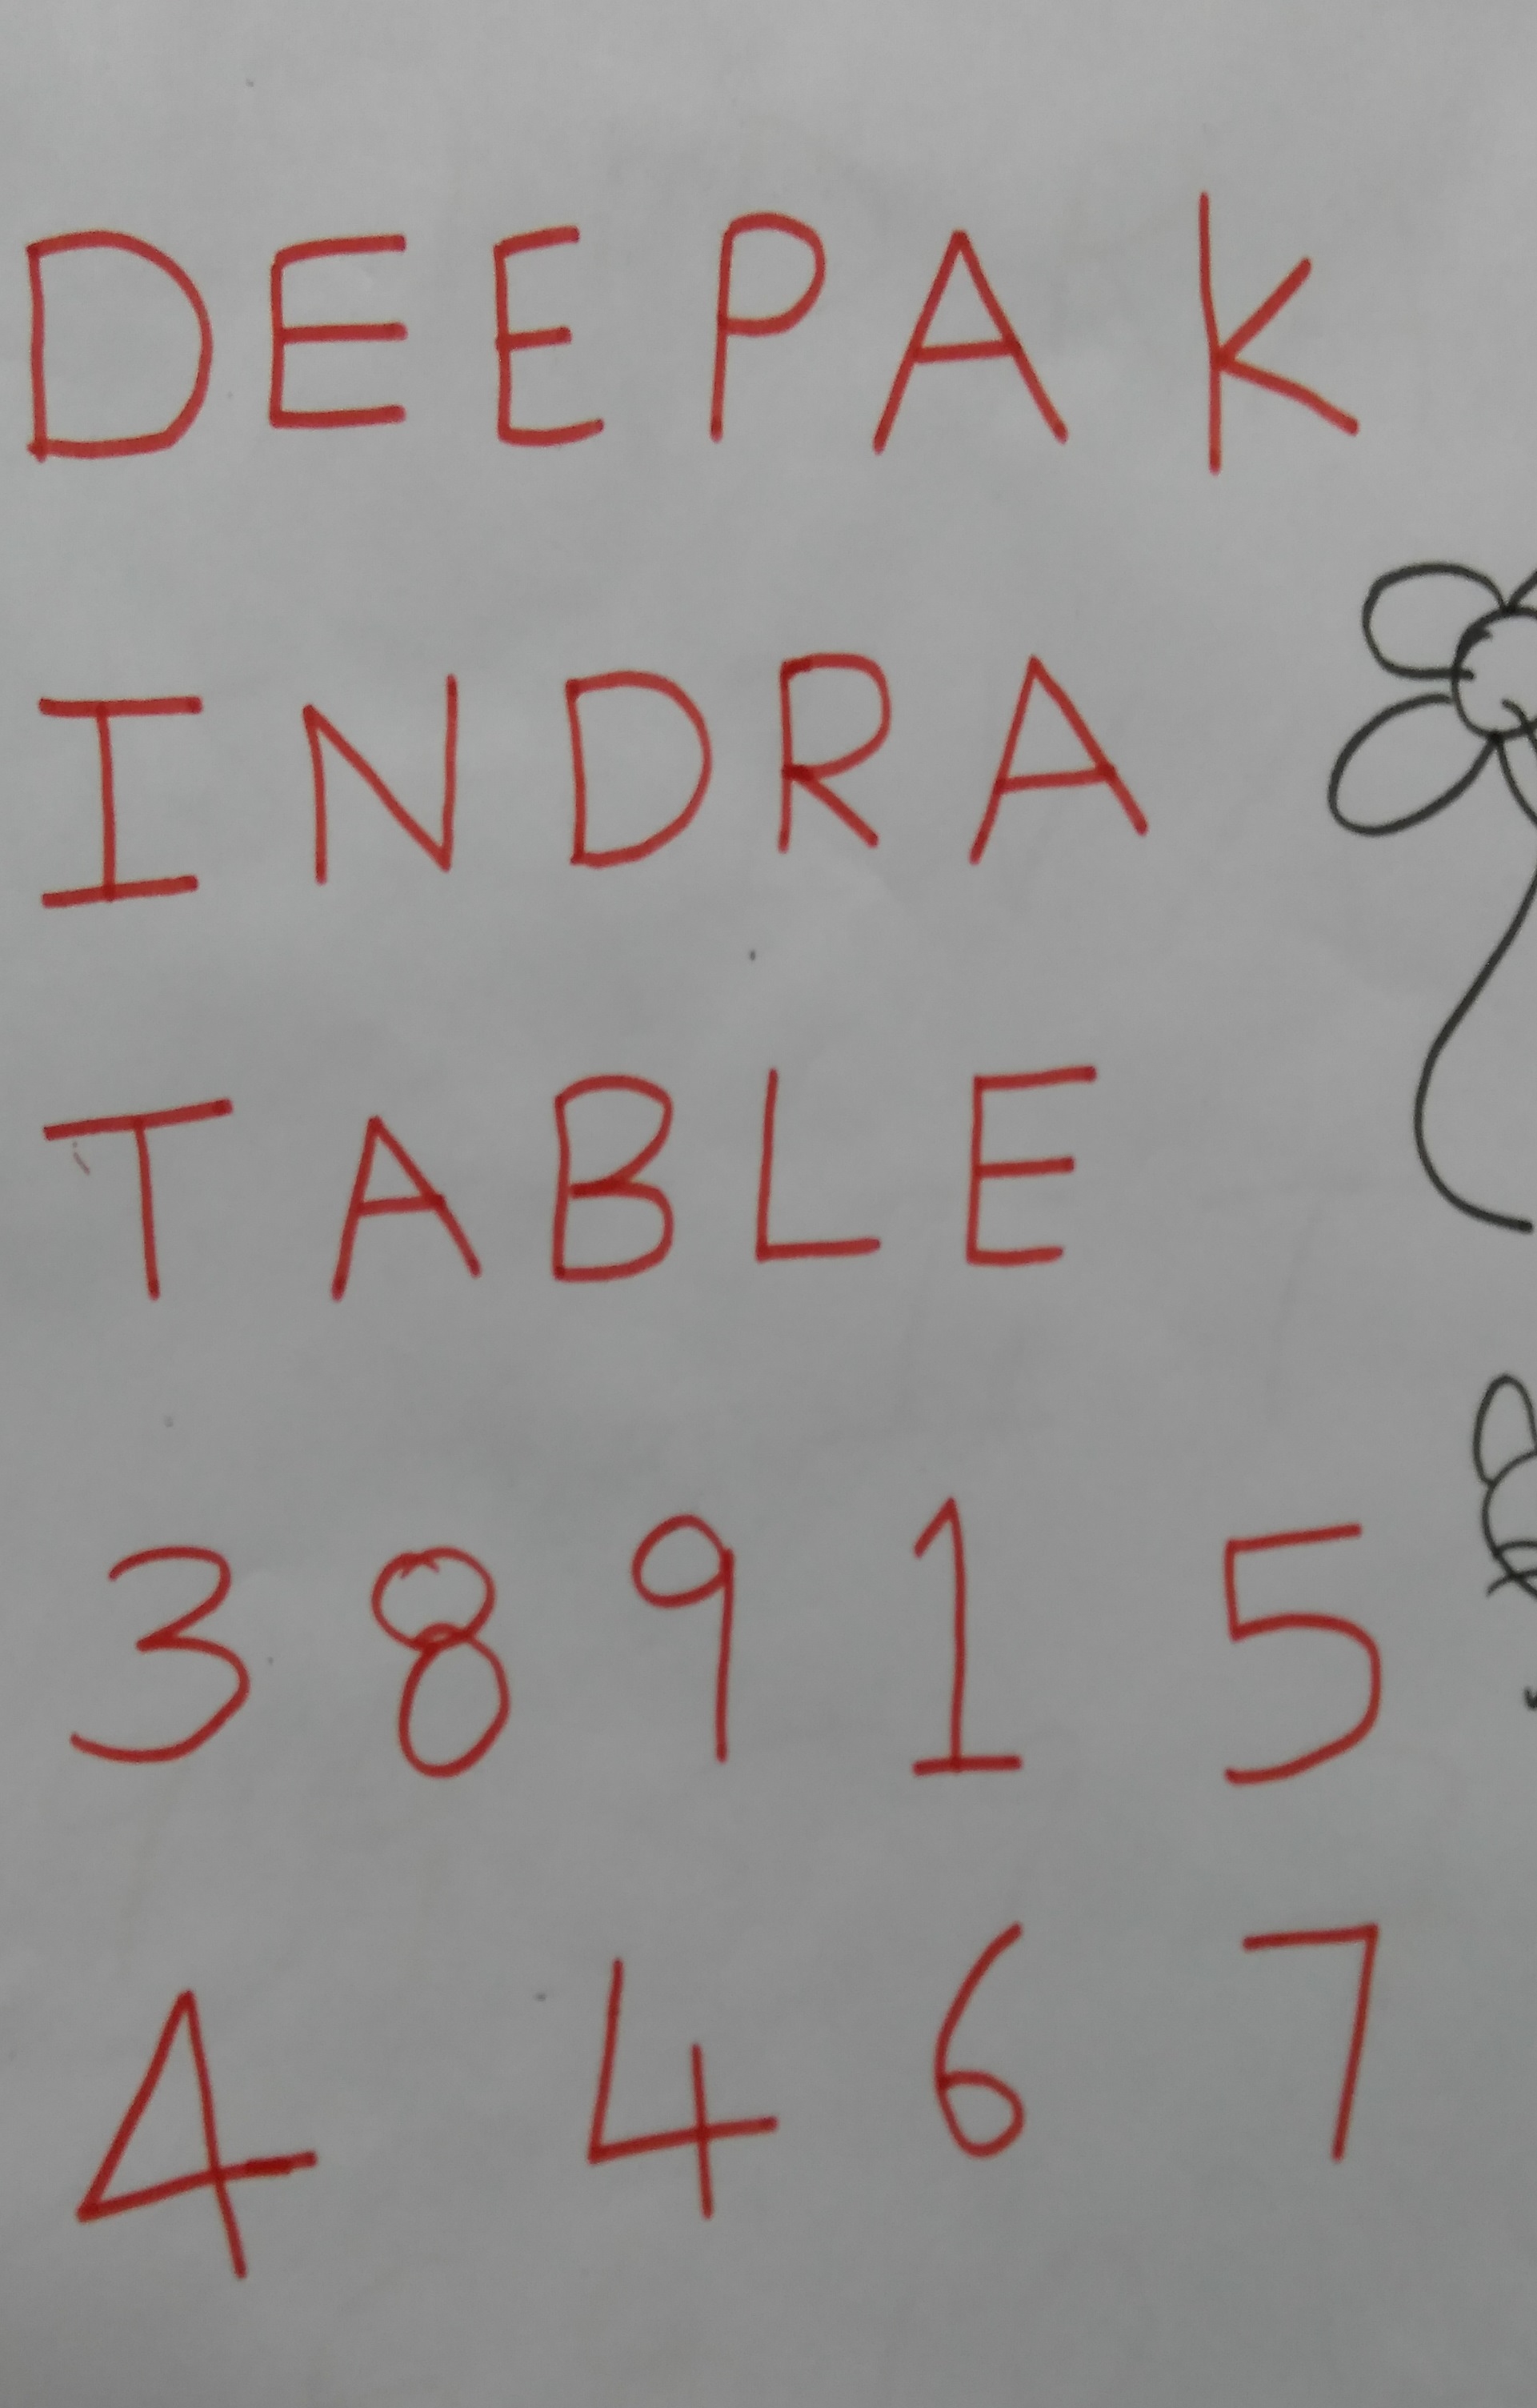 DEEPAK
INDRA
TABLE
3 8 9 1 5
4 4 6 7